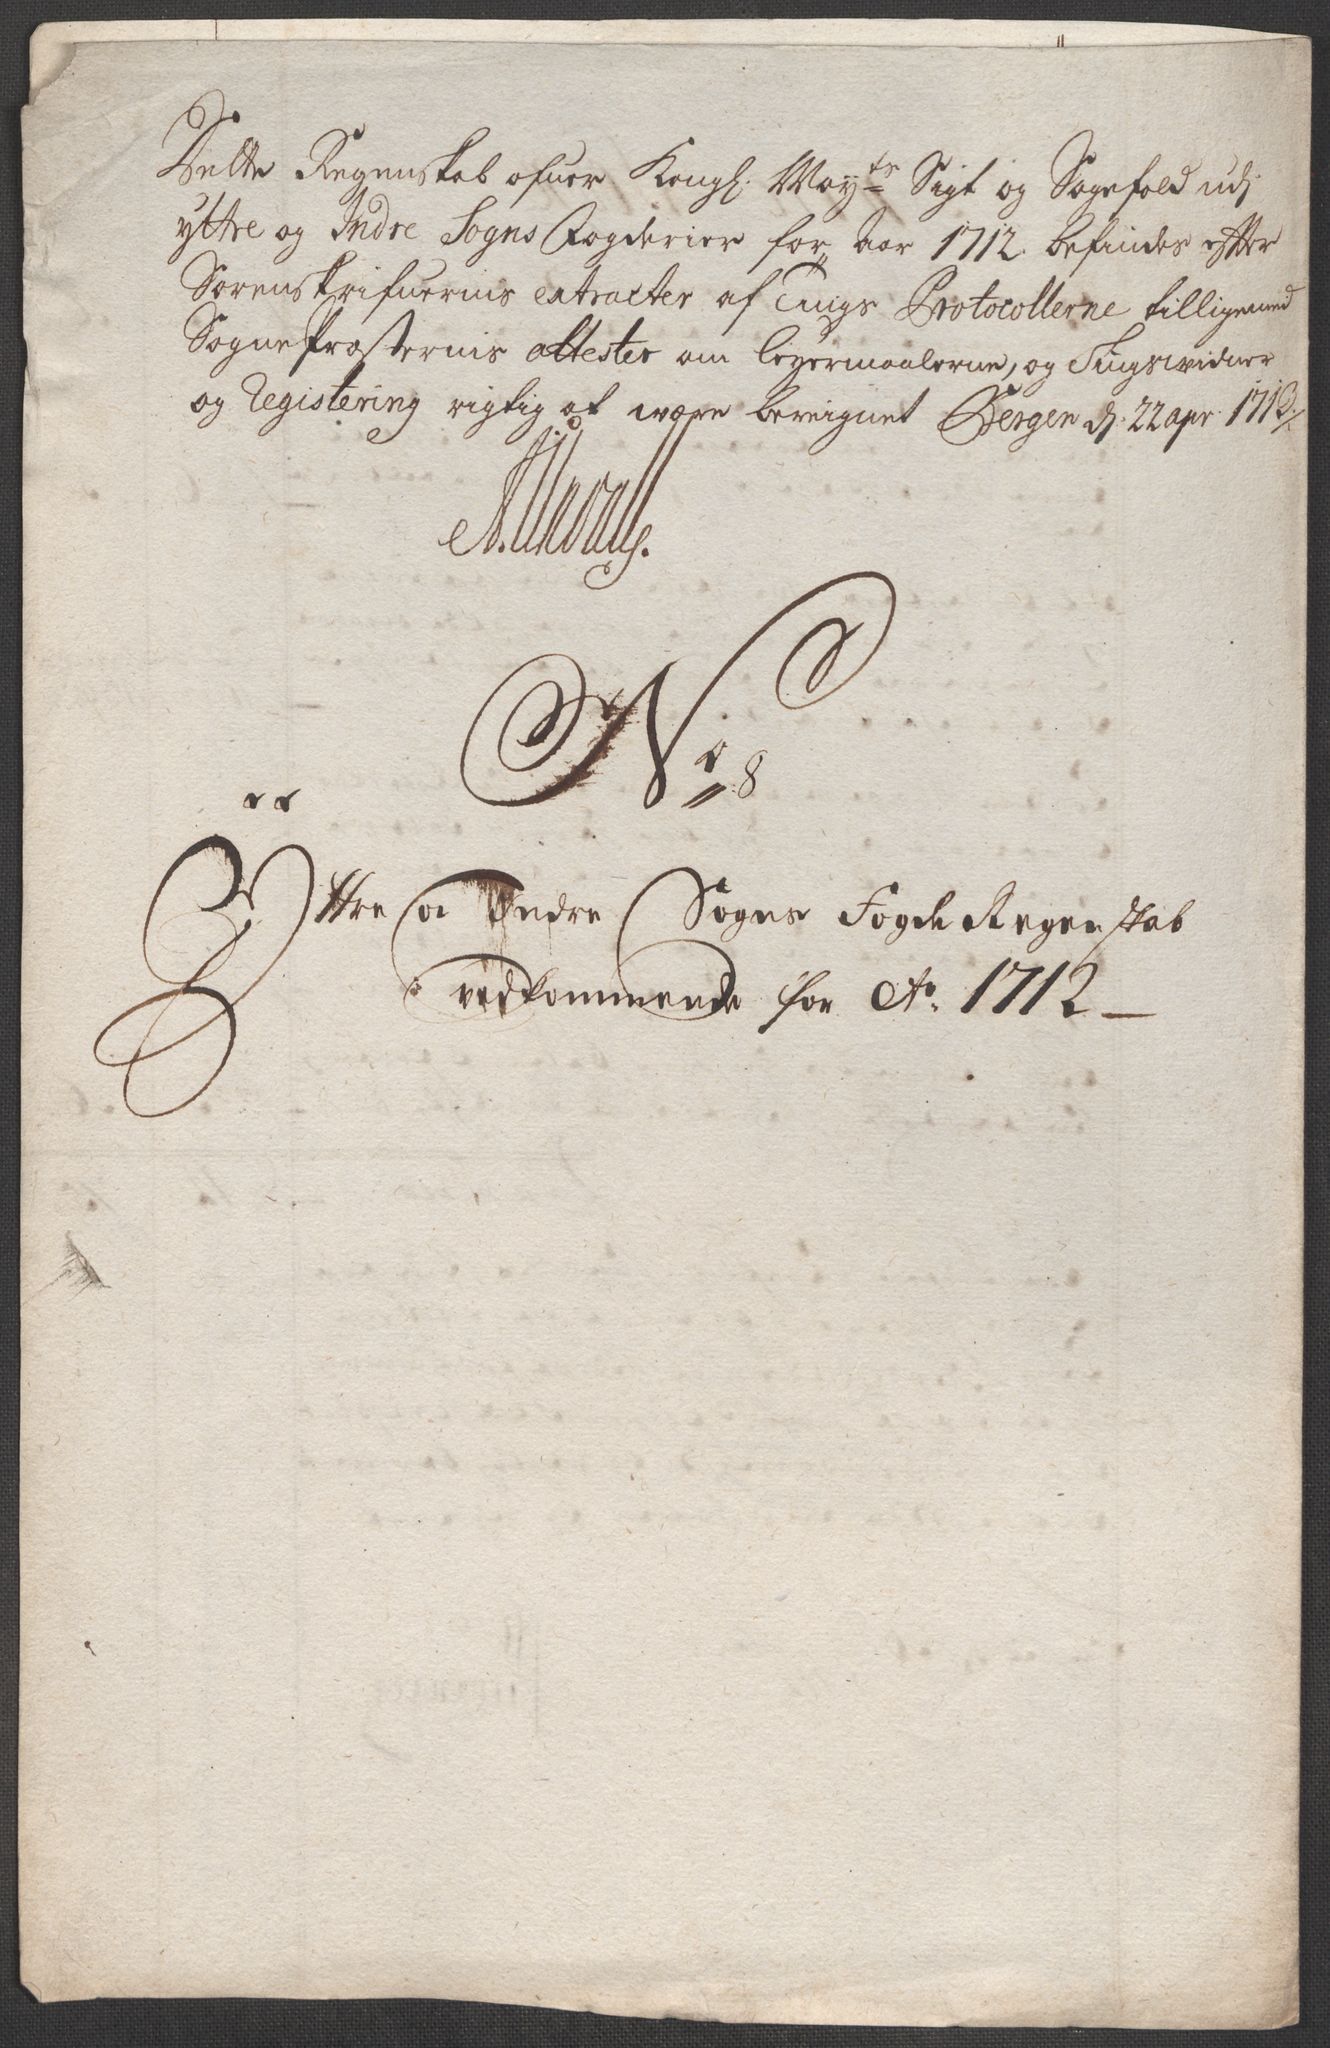 Dette Regenskab ofuer Kongl: May:ts Sigt og Sagefald udj
yttre og Indre Sogns Fogderier for Aar 1712 befindes efter
Sorenskrifuernis extracter af Tings Protocollerne tilligemed
SognePræsternis attester om leyermaalerne, og Tingswidner
og Registering rigtig at were bereignet Bergen d: 22 apr: 1713
No 8
Ÿttre og Indre Sogns Fogde Regenskab
vedkommende for Ao 1712